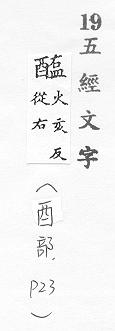 19五經文字
醢火亥反
從右
(酉部, P23)